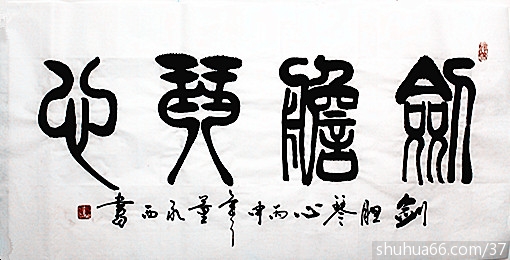 劍膽琴心
剑胆琴心丙申年董永西書
shuhua66.com/37